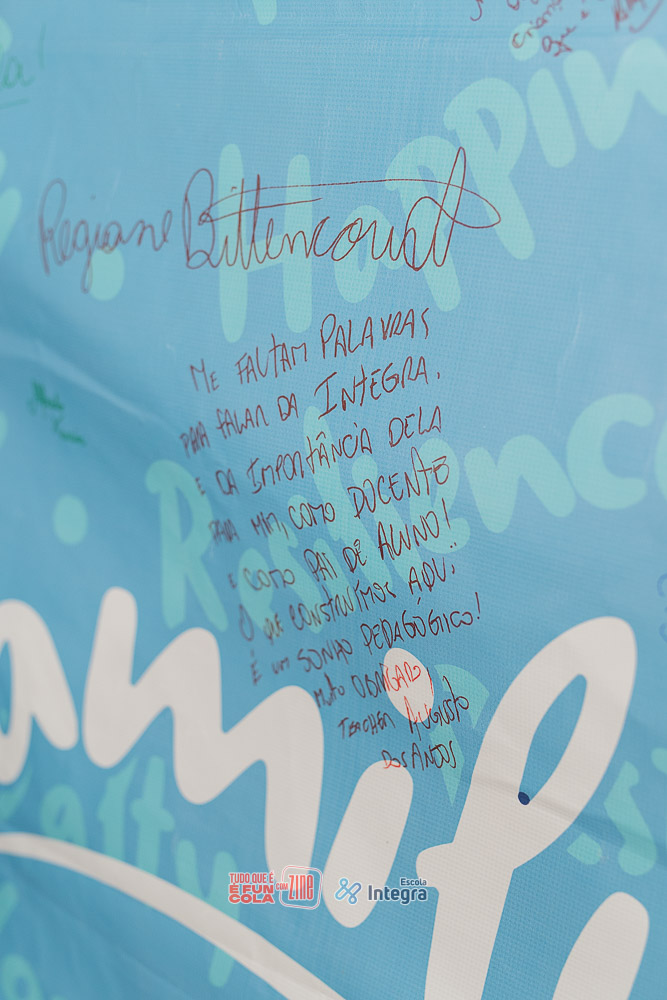 Criança
que é
Happin
Regiane Bittencourt
ME FALTAM PALAVRAS
PARA FALAR DA INTEGRA,
E DA IMPORTÂNCIA DELA
PARA MIM, COMO DOCENTE
E COMO PAI DE ALUNO!
O QUE CONSTRUÍMOS AQUI,
É UM SONHO PEDAGÓGICO!
MUITO OBRIGADO!
TEACHER AUGUSTO
DOS ANJOS
Resilienc
amil
alty
TUDO QUE É
É FUN COM ZINE
COLA
Escola
Integra